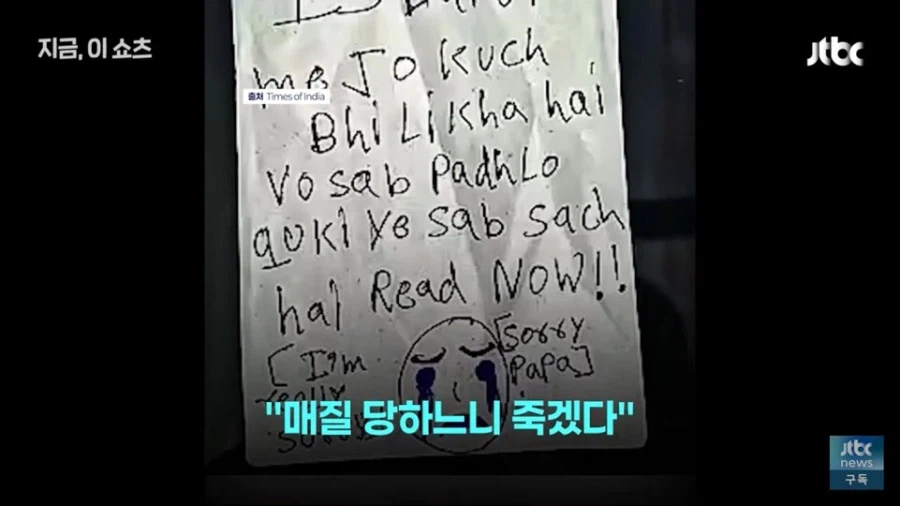 지금, 이 쇼츠
jtbc
me Jo kuch
출처 Times of India
Bhi Likha hai
Vo sab Padh Lo
quki Ye sab sach
hai Read NOW!!
[I'm
[Sorry
PaPa]
really
"매질 당하느니 죽겠다"
jtbc
news
구독